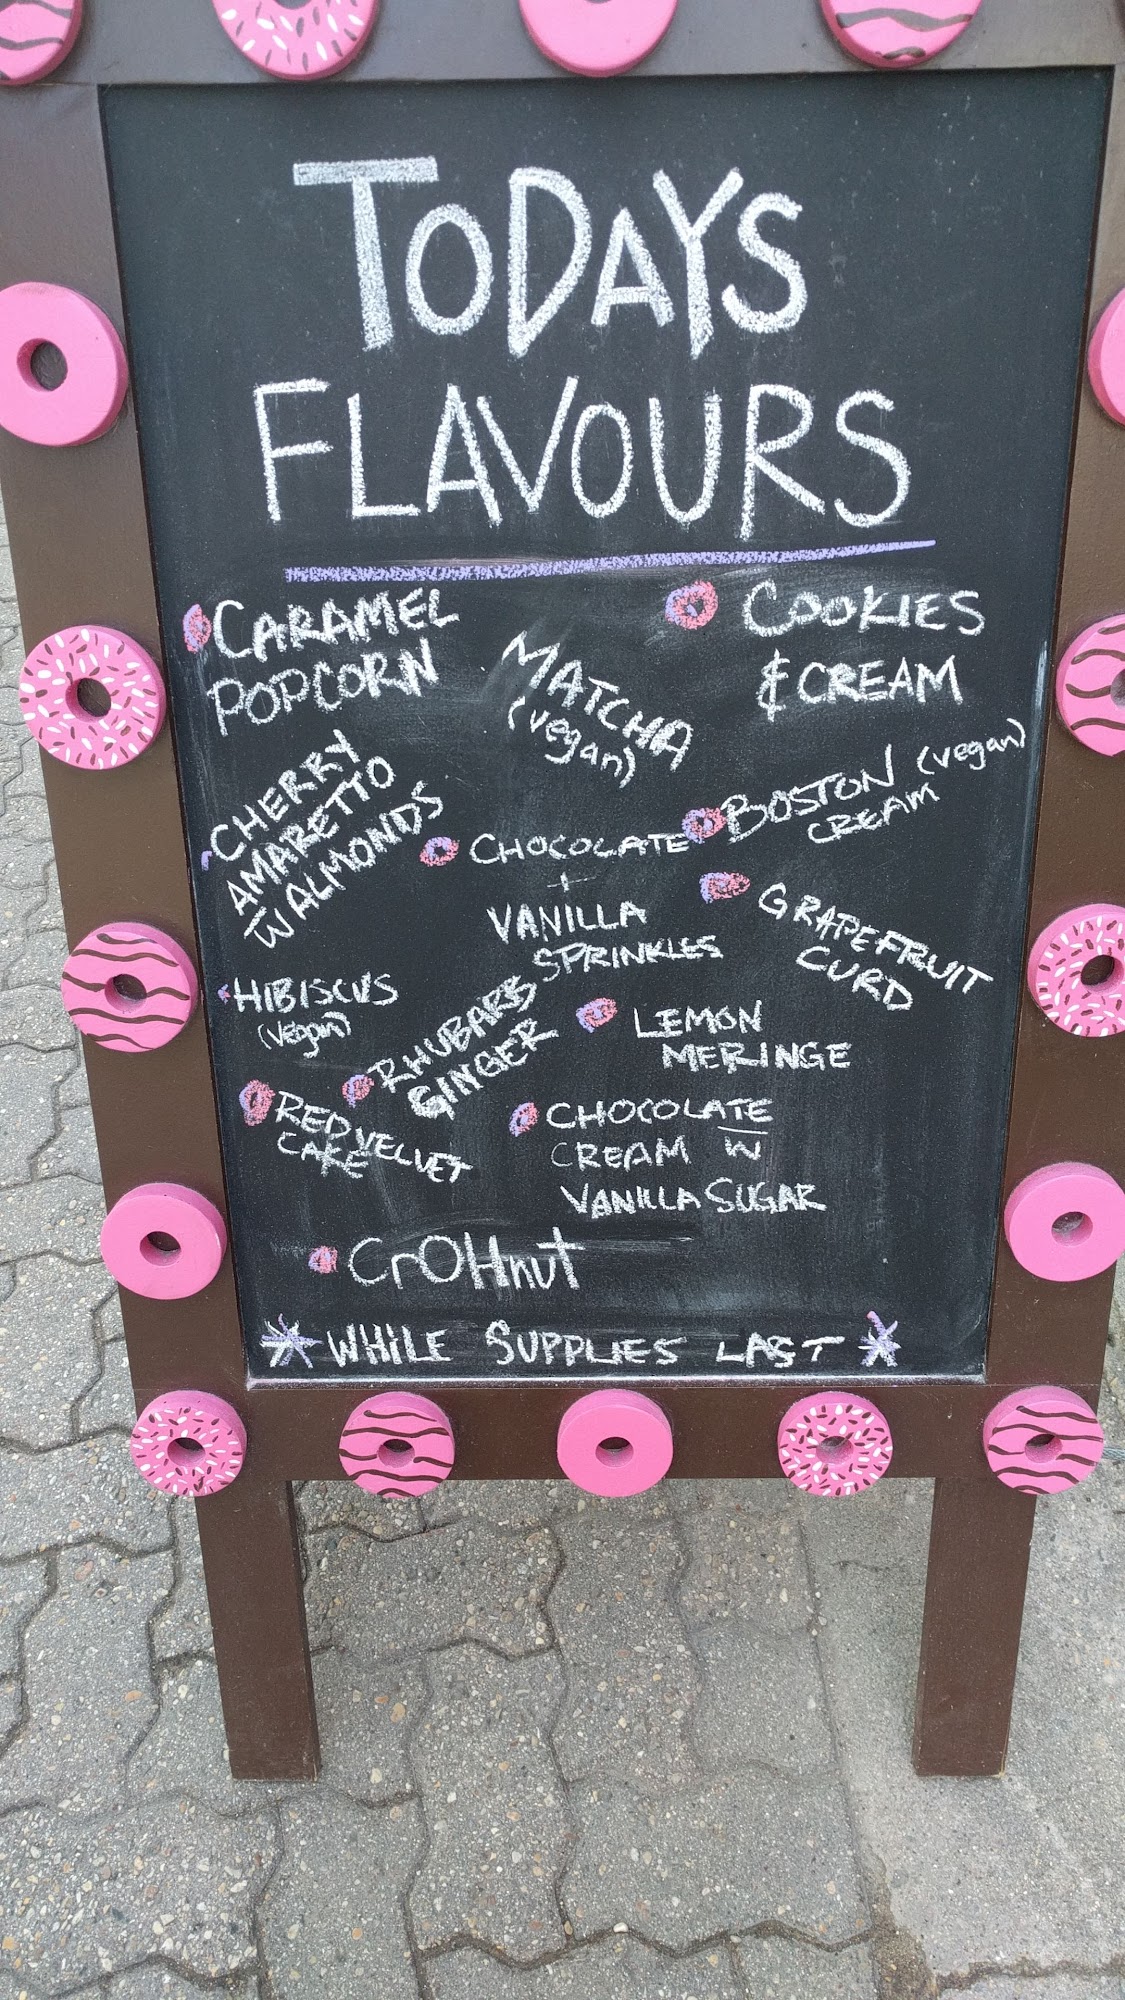 TODAYS
FLAVOURS
CARAMEL
POPCORN
MATCHA
(vegan)
COOKIES
& CREAM
CHERRY
AMARETTO
W ALMONDS
CHOCOLATE
+
VANILLA
SPRINKLES
BOSTON (vegan)
CREAM
GRAPEFRUIT
CURD
HIBISCUS
(vegan)
RHUBARB
GINGER
LEMON
MERINGE
RED VELVET
CAKE
CHOCOLATE
CREAM W
VANILLA SUGAR
CrOHnut
* WHiLE SUPPLIES LAST *